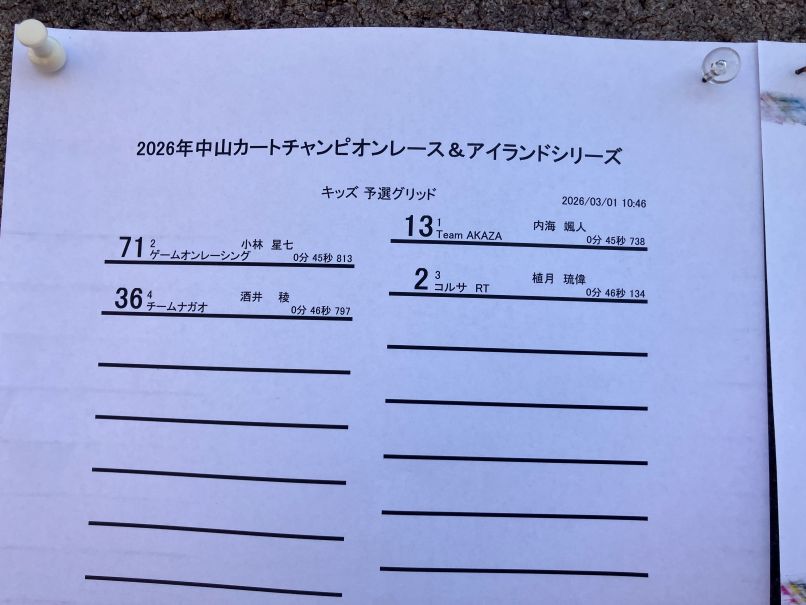 2026年中山カートチャンピオンレース＆アイランドシリーズ
キッズ 予選グリッド
2026/03/01 10:46
13 1 内海 颯人
Team AKAZA 0分 45秒 738
71 2 小林 星七
ゲームオンレーシング 0分 45秒 813
2 3 植月 琉偉
コルサ RT 0分 46秒 134
36 4 酒井 稜
チームナガオ 0分 46秒 797